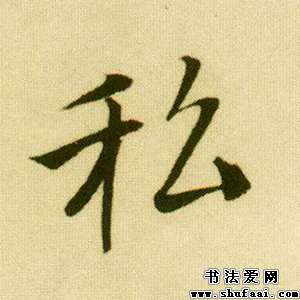 私
书法爱网
www.shufaai.com